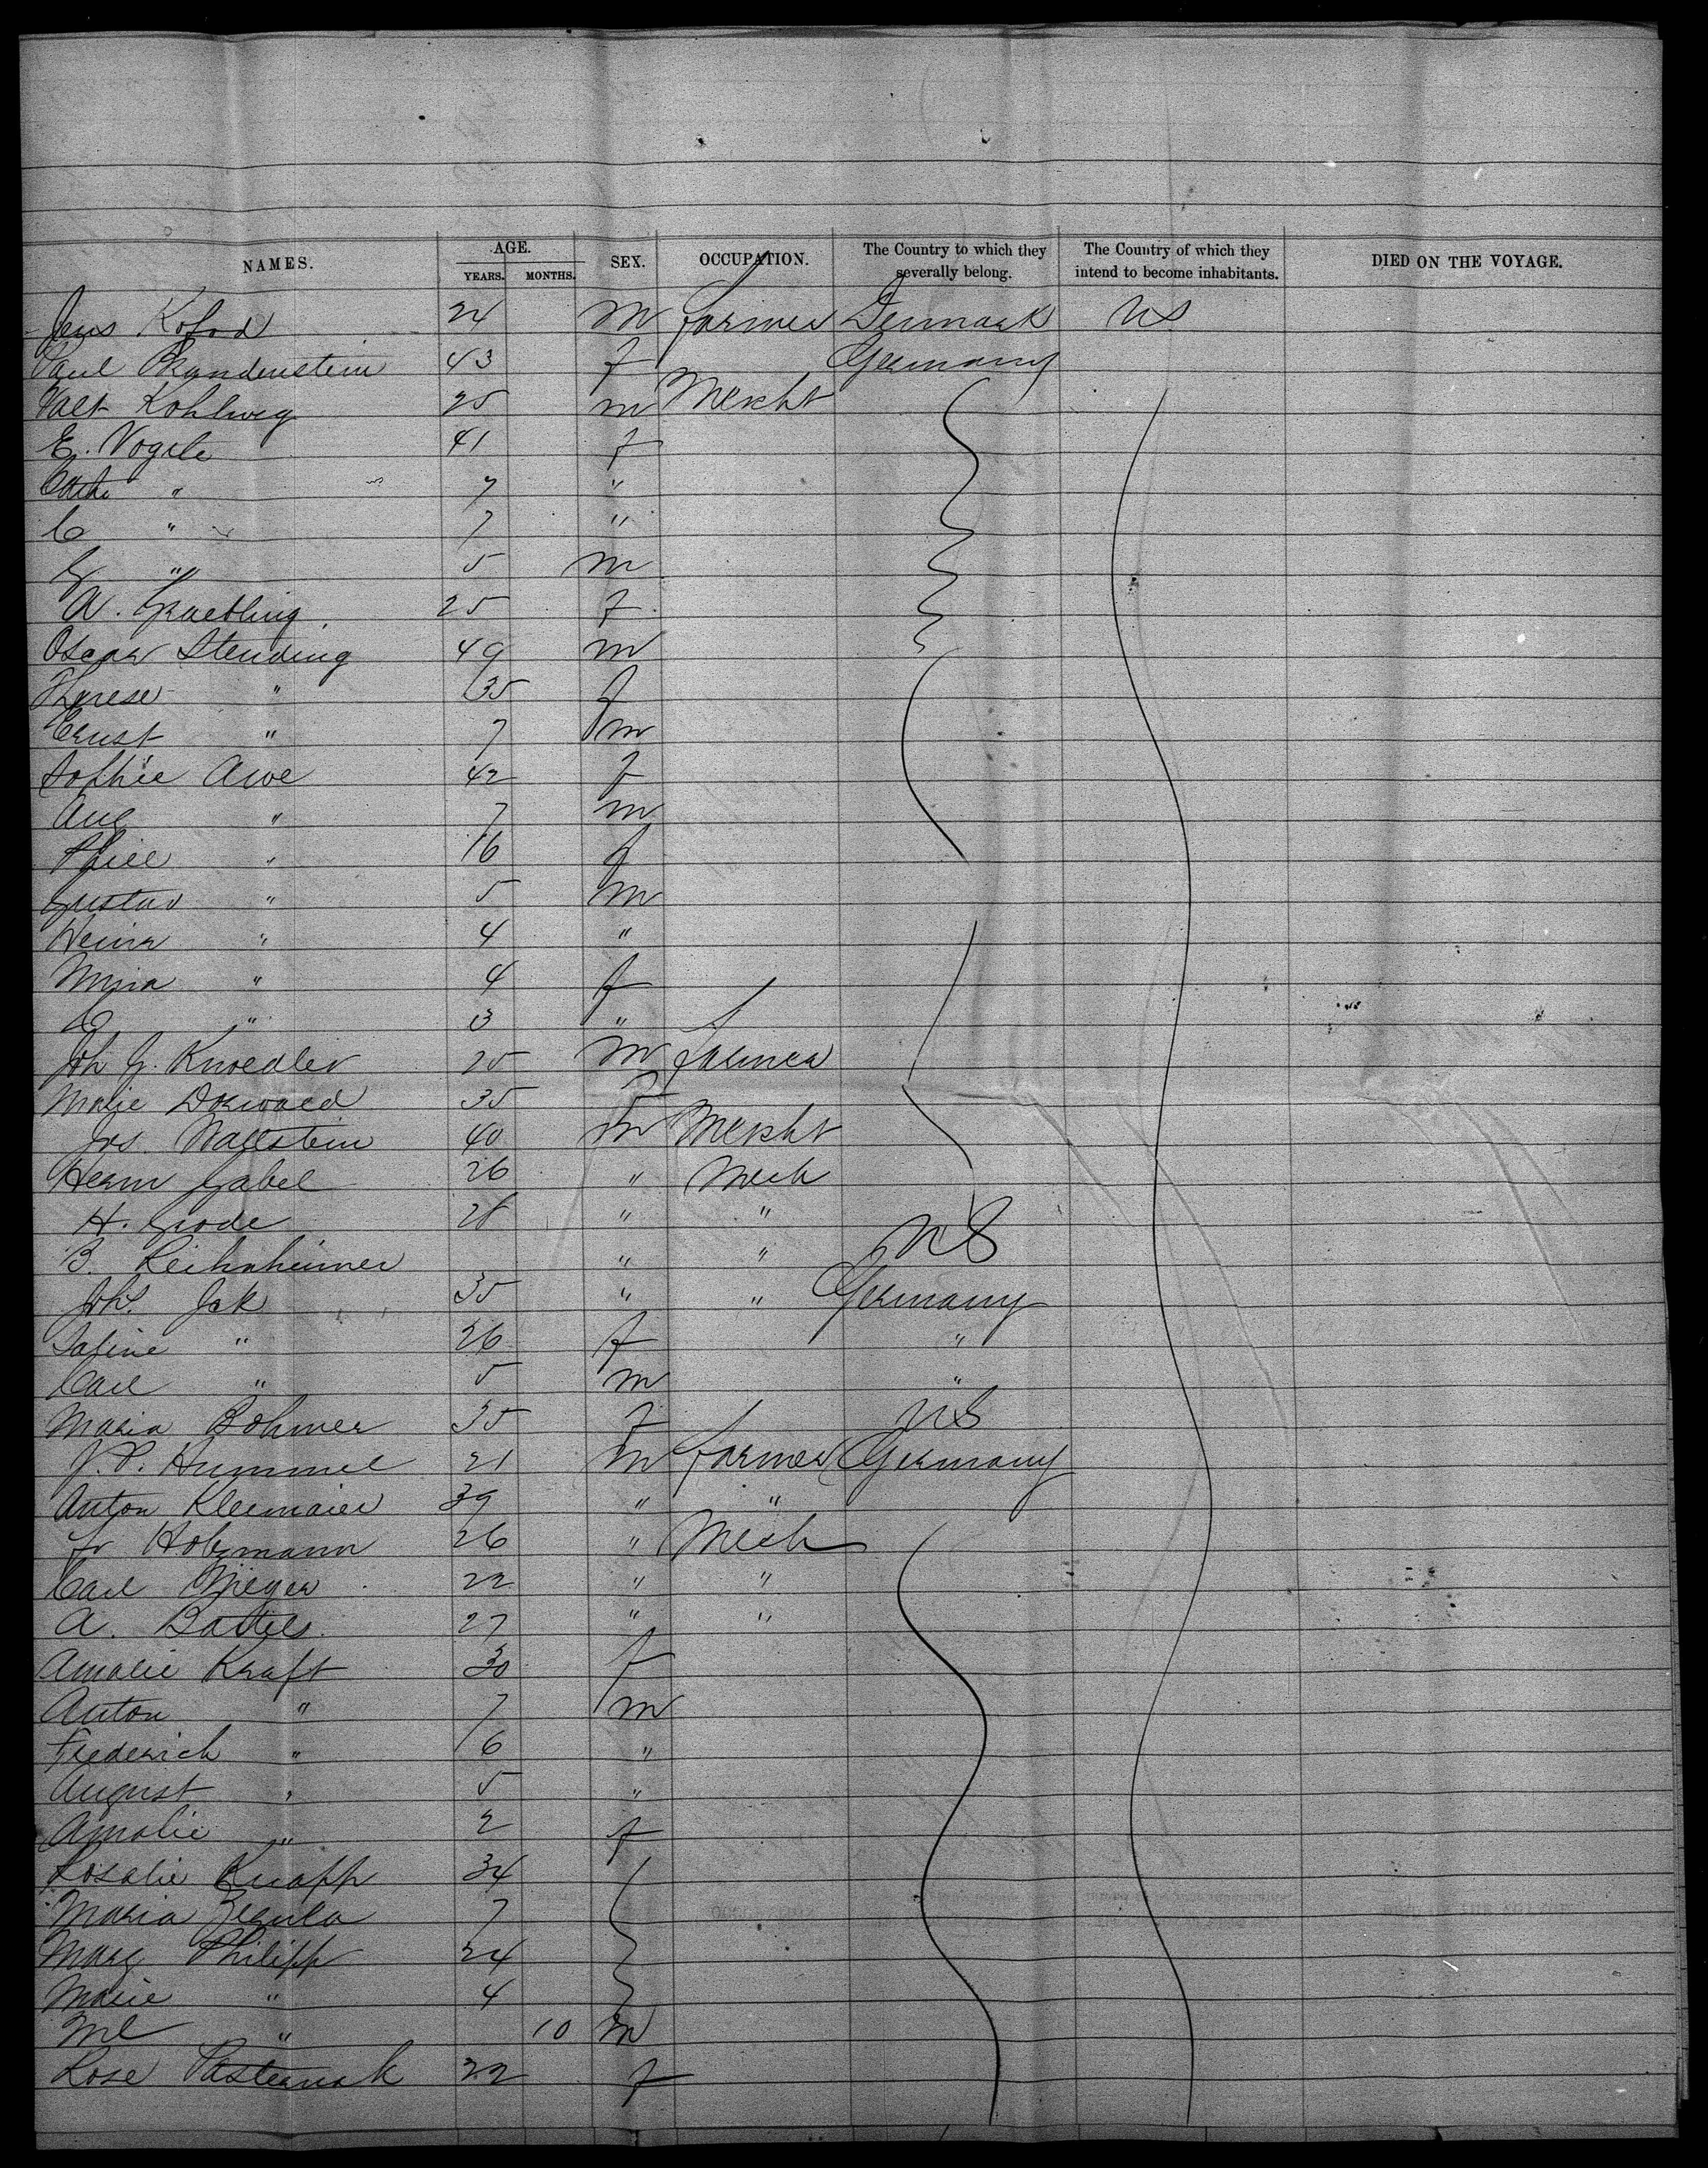 NAMES. AGE. YEARS. MONTHS. SEX. OCCUPATION. The Country to which they severally belong. The Country of which they intend to become inhabitants. DIED ON THE VOYAGE.
Jens Kofod 24 m farmer Denmark US
Paul Brandenstein 43 f Germany
Valt Kohlweg 25 m Mercht
E. Vogele 41 f
Cath " 7 "
C " 7 "
G " 5 m
A. Graebling 25 f
Oscar Stending 49 m
Therese " 35 f
Ernst " 7 m
Sophie Awe 42 f
Aug " 7 m
" 16 f
Gustav " 5 m
Heinr " 4 "
Mina " 4 f
C " 3 "
Joh G. Knoedler 25 m farmer
Marie Dorwald 35 f
Jos. Wallstein 40 m Mercht
Herm Gabel 26 " Mech
H. Grode 28 " " US
B. Reihnheimer " "
Joh. Jak 35 " " Germany
Sabine " 26 f "
Carl " 5 m "
Maria Bohmer 35 f US
J. P. Hummel 21 m farmer Germany
Anton Kleemaier 39 " "
Fr Holzmann 26 " Mech
Carl 22 " "
A. Battels 27 " "
Amalie Kraft 30 f
Anton " 7 m
Frederich " 6 "
August " 5 "
Amalie " 2 f
Rosalie Knapp 34
Maria Zegula 7
Marg Philipp 24
Marie " 4
Ml " 10 m
Rose Pasternak 22 f